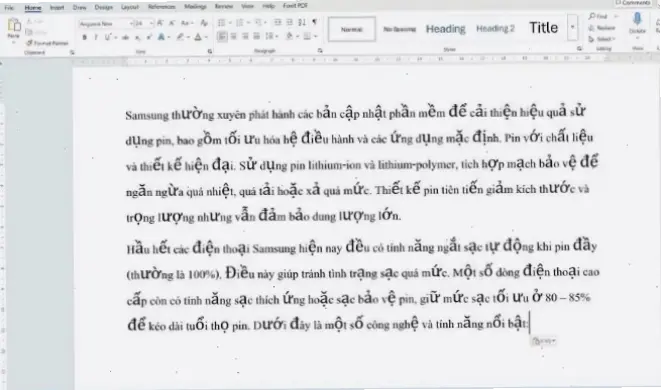 File Home Insert Draw Design Layout References Mailings Review View Help Foxit PDF
Comments
Format Painter
Normal No Spacing Heading Heading 2 Title
Samsung thường xuyên phát hành các bản cập nhật phần mềm để cải thiện hiệu quả sử
dụng pin, bao gồm tối ưu hóa hệ điều hành và các ứng dụng mặc định. Pin với chất liệu
và thiết kế hiện đại. sử dụng pin lithium-ion và lithium-polymer, tích hợp mạch bảo vệ để
ngăn ngừa quá nhiệt, quá tải hoặc xả quá mức. Thiết kế pin tiên tiến giảm kích thước và
trọng lượng nhưng vẫn đảm bảo dung lượng lớn.
Hầu hết các điện thoại Samsung hiện nay đều có tính năng ngắt sạc tự động khi pin đầy
(thường là 100%). Điều này giúp tránh tình trạng sạc quá mức. Một số dòng điện thoại cao
cấp còn có tính năng sạc thích ứng hoặc sạc bảo vệ pin, giữ mức sạc tối ưu ở 80 – 85%
để kéo dài tuổi thọ pin. Dưới đây là một số công nghệ và tính năng nổi bật: